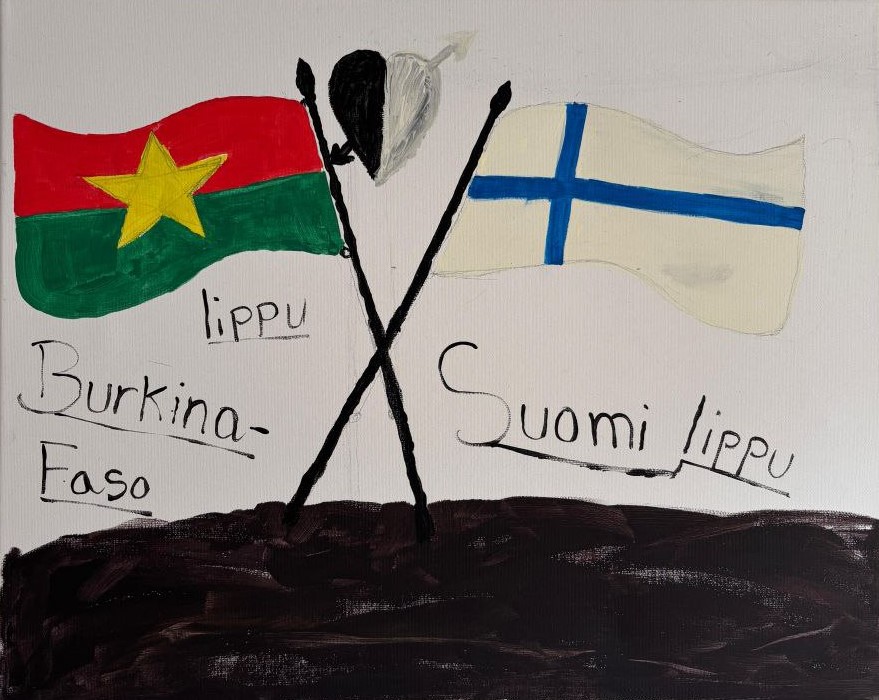 lippu
Burkina-
Faso
Suomi lippu